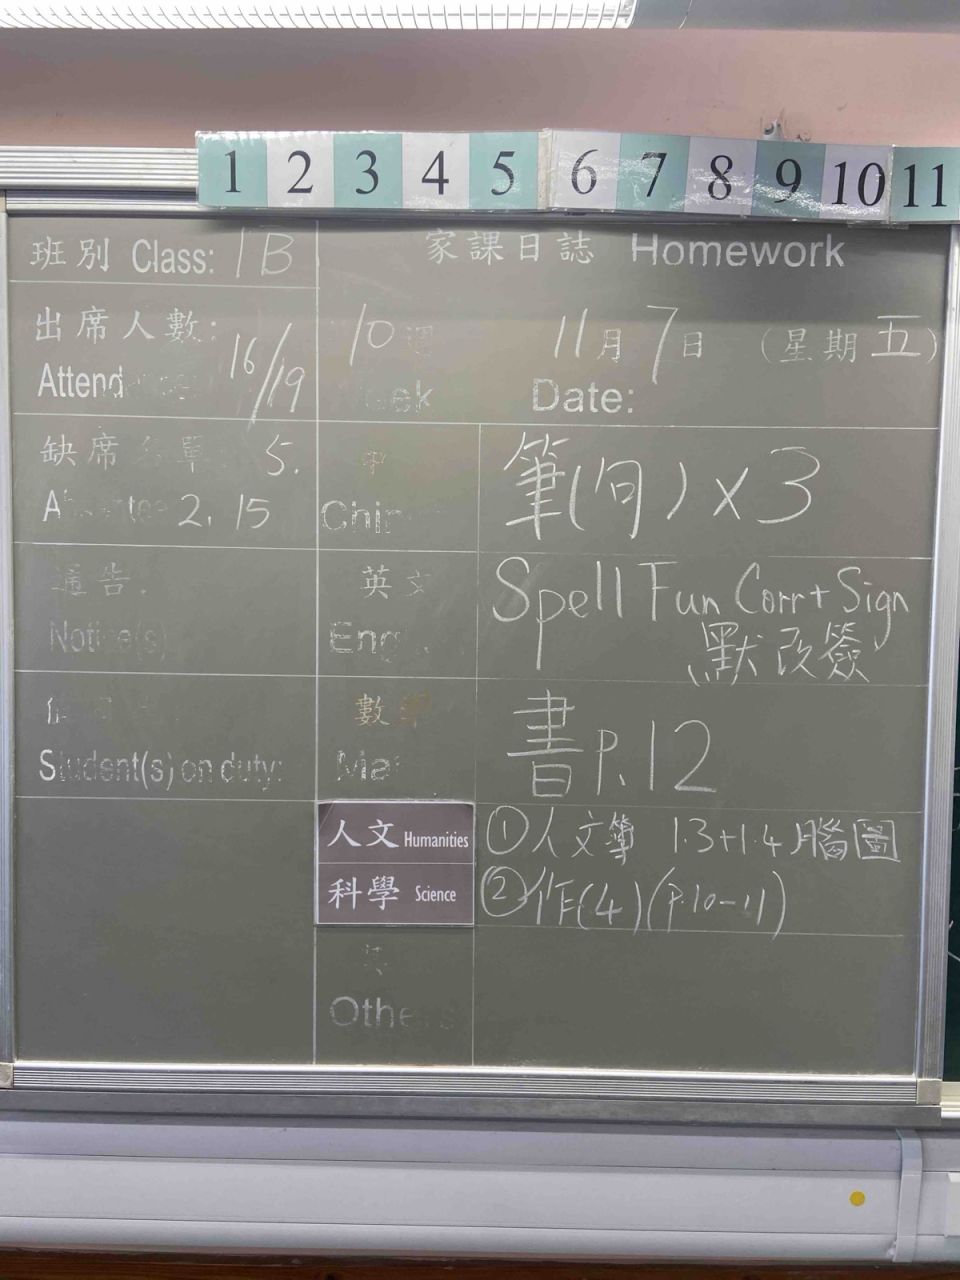 1 2 3 4 5 6 7 8 9 10 11
班別 Class: 1B
家課日誌 Homework
出席人數:
Attend 16/19
10 週
11月7日 (星期五)
Date:
缺席名單: 5.
2, 15
中
Chin
筆(句)x3
通告:
Notice(s)
英文
Eng
Spell Fun Corr+Sign
默改簽
Student(s) on duty:
數學
Ma
書P.12
人文 Humanities
①人文筆 1.3+1.4腦圖
科學 Science
②作(4)(P.10-11)
Others